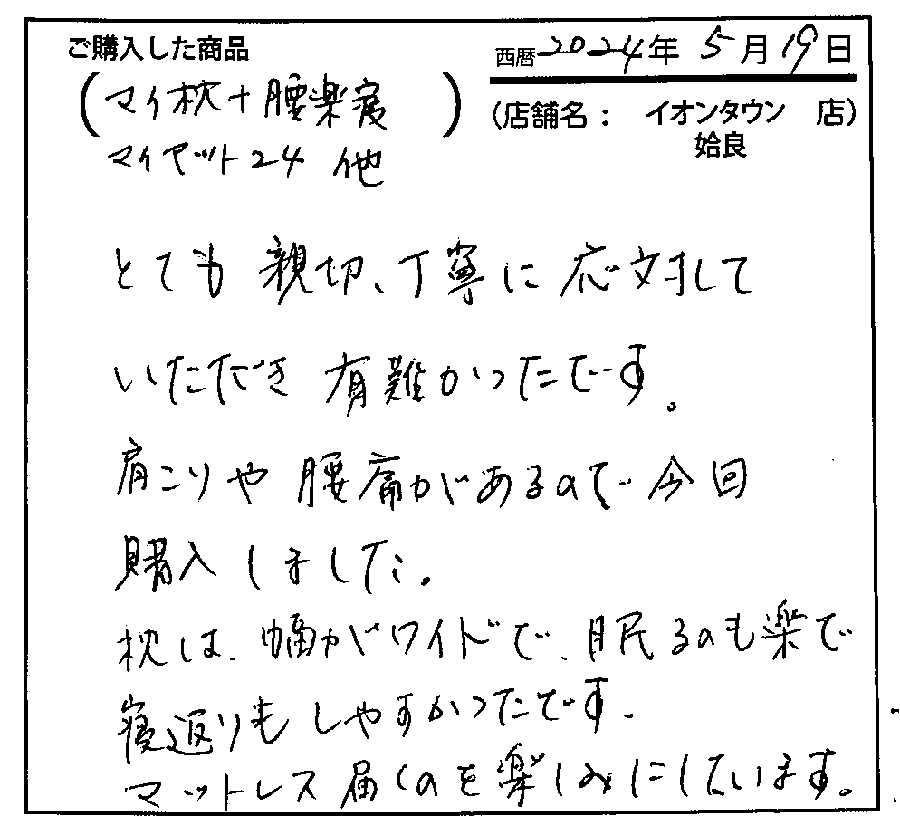 ご購入した商品
西暦2024年5月19日
(マイ枕+腰楽寝)
マイセット24 他
(店舗名: イオンタウン 店)
姶良
とても親切、丁寧に応対して
いただき有難かったです。
肩こりや腰痛があるので今回
購入しました。
枕は、幅がワイドで、眠るのも楽で
寝返りもしやすかったです。
マットレス届くのを楽しみにしています。